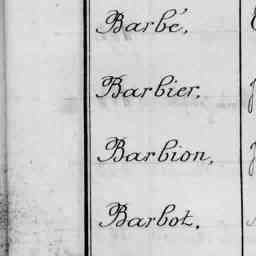 Barbé,
Barbier,
Barbion,
Barbot,